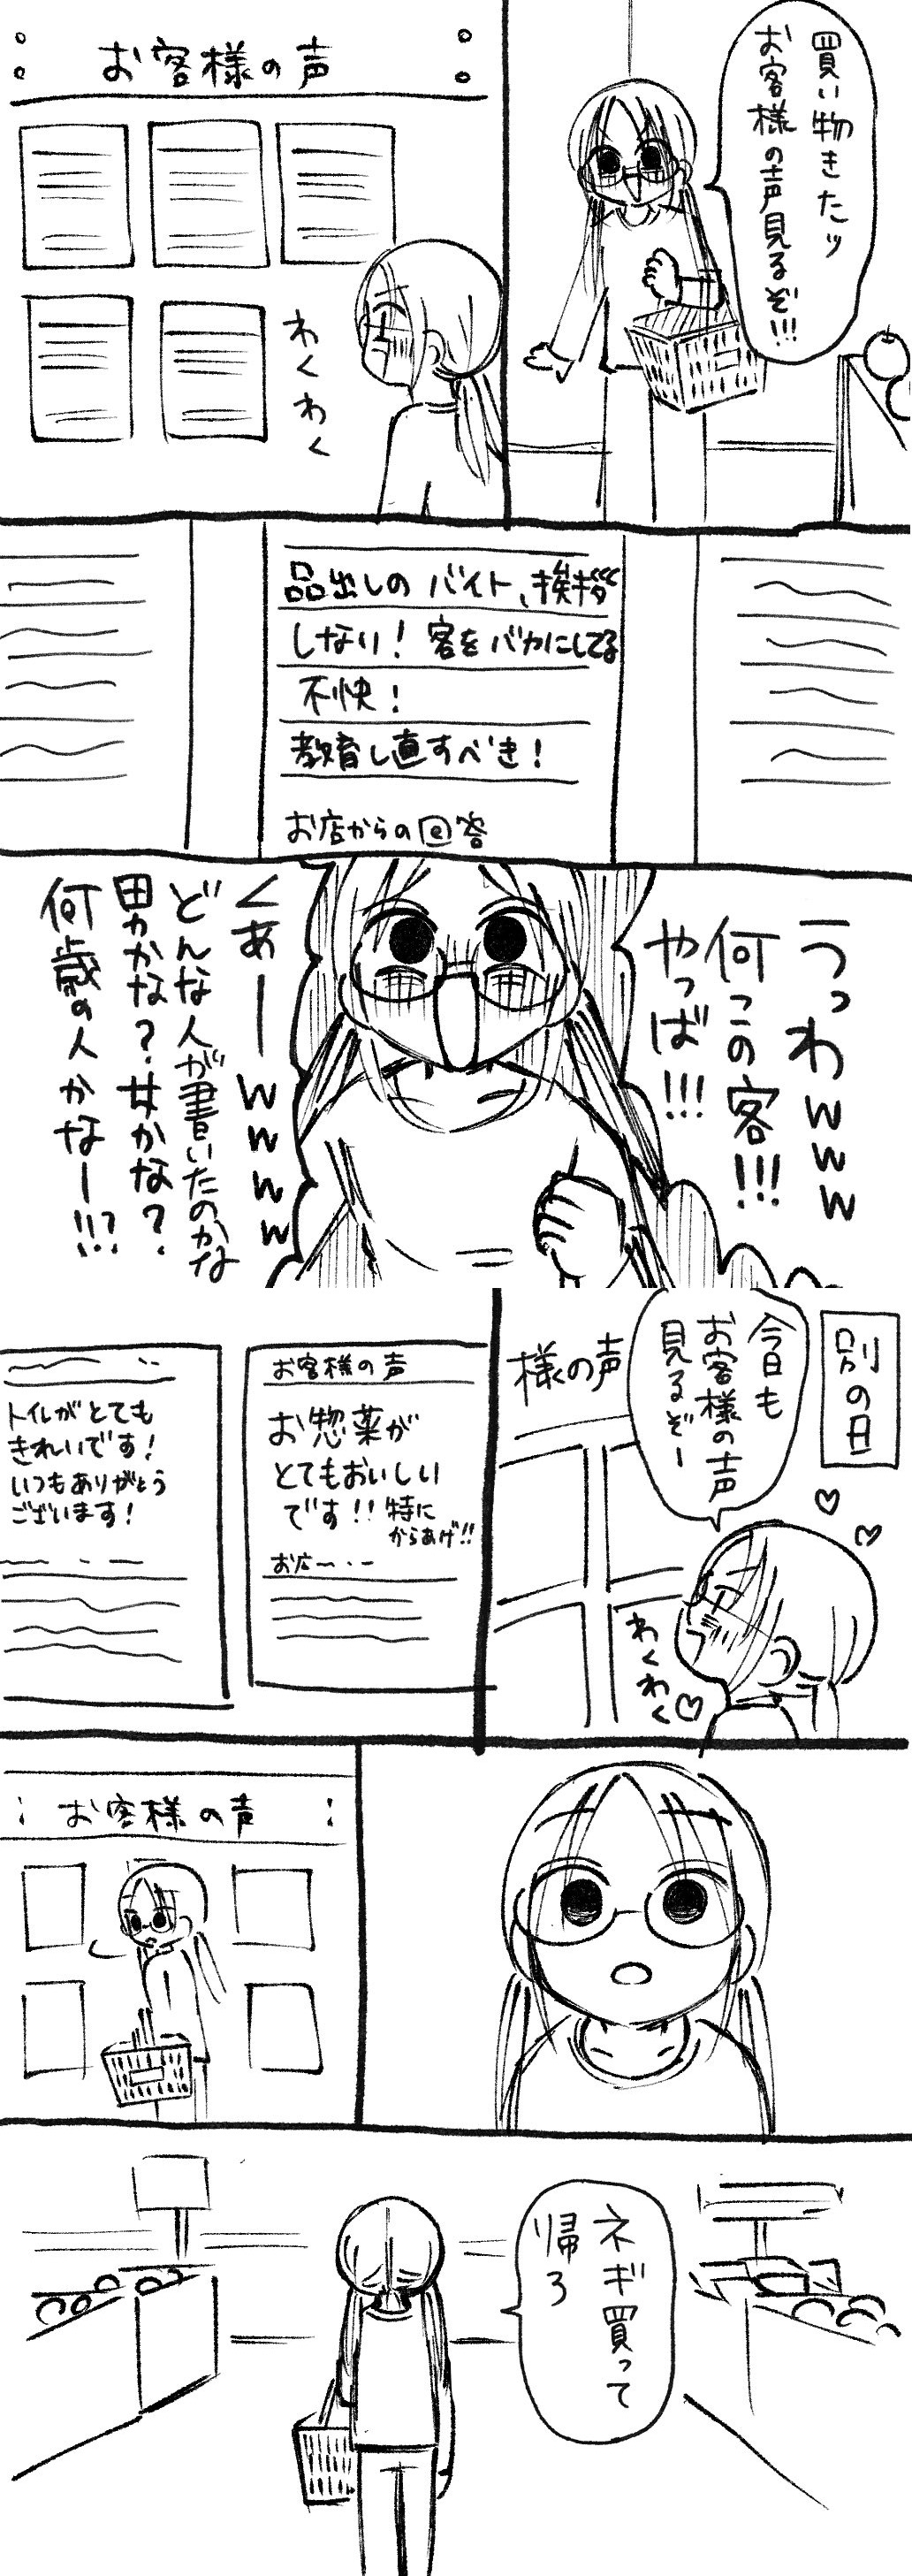 買い物きたッ
お客様の声見るぞ!!!
お客様の声
わくわく
品出しのバイト、挨拶
しない！客をバカにしてる
不快！
教育し直すべき！
お店からの回答
うっわwww
何この客!!!
やっば!!!
くぁーwwww
どんな人が書いたのかな
男かな？女かな？
何歳の人かなー!!?
別の日
今日も
お客様の声
見るぞー
様の声
わくわく
お客様の声
お惣菜が
とてもおいしい
です!!特に
からあげ!!
お店
トイレがとても
きれいです！
いつもありがとう
ございます！
お客様の声
ネギ買って
帰ろ